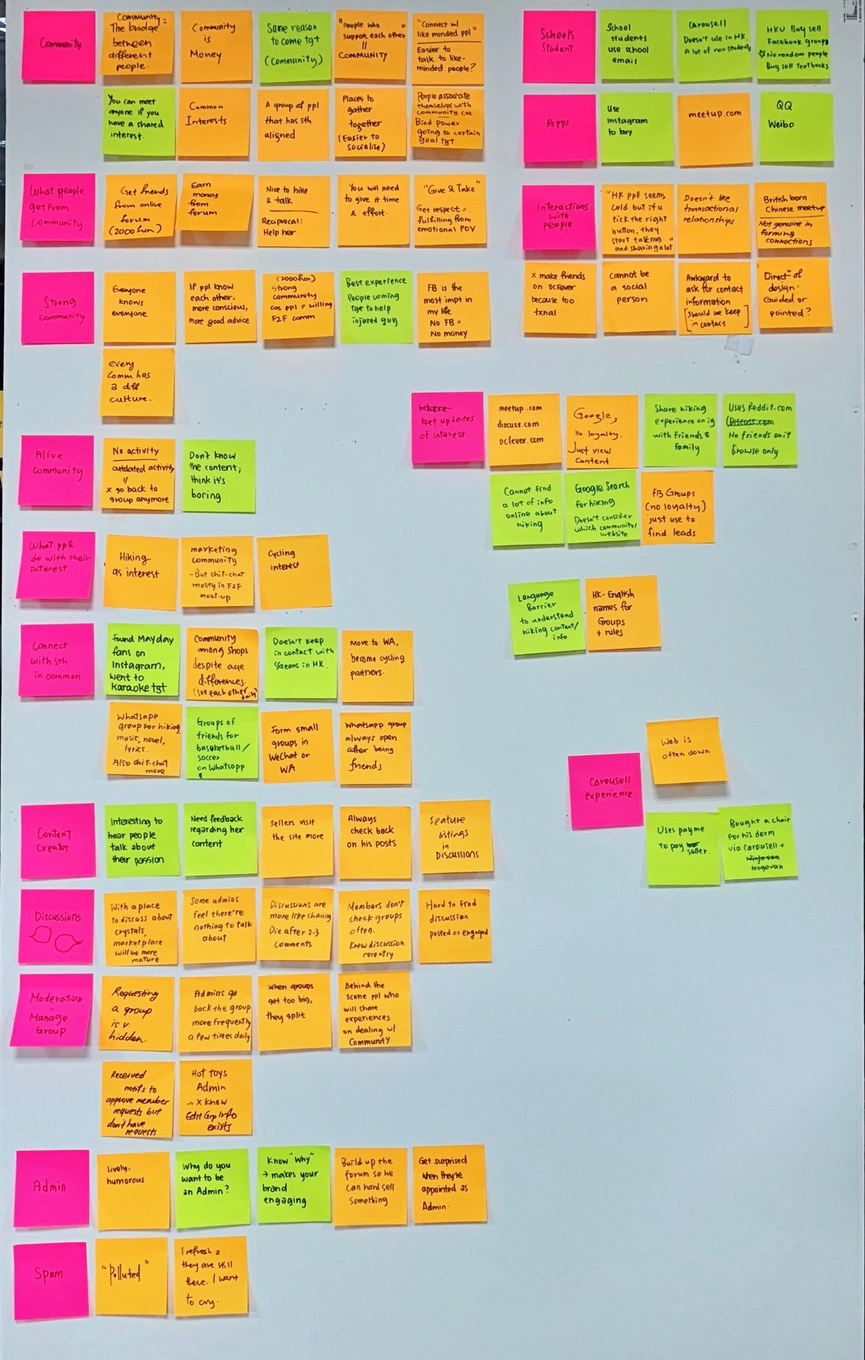 Community
Community:
The bridge
between
different
people.
Community
is
Money
Same reason
to come tgt
(community)
"People who
support each other"
||
COMMUNITY
"Connect w/
like minded ppl"
Easier to
talk to like-
minded people?
You can meet
anyone if you
have a shared
interest.
Common
Interests
A group of ppl
that has sth
aligned
Places to
gather
together
(Easier to
socialise)
People associate
themselves with
community cos
Bind power
going to certain
goal tgt
What people
get from
Community
Get friends
from online
forum
(2000 fun)
Earn
money
from
forum
Nice to hike
& talk
Reciprocal:
Help her
You will need
to give it time
& effort.
"Give & Take"
Get respect =
fulfilling from
emotional POV
Strong
community
Everyone
knows
everyone
If ppl know
each other,
more conscious,
more good advice
(2000 fun)
strong
community
cos ppl r willing
F2F comm
Best experience
People coming
tgt to help
injured guy
FB is the
most impt in
my life
No FB =
No money
every
Comm has
a diff
culture.
Alive
Community
No activity
outdated activity
||
x go back to
group anymore
Don't know
the content,
think it's
boring
What ppl
do with their
interest
Hiking
as interest
marketing
community
-But chit-chat
mostly in F2F
meet-up
Cycling
interest
Connect
with sth
in common
Found Mayday
fans on
Instagram,
went to
karaoke tgt
Community
among shops
despite age
differences.
(see each other daily)
Doesn't keep
in contact with
in HK.
Move to WA,
become cycling
partners.
Whatsapp
group for hiking
music, novel,
lyrics.
Also chit-chat
more
Groups of
friends for
basketball/
soccer
on Whatsapp
Form small
groups in
WeChat or
WA
Whatsapp group
always open
after being
friends
Content
Creator
Interesting to
hear people
talk about
their passion
Need feedback
regarding her
content
Sellers visit
the site more
Always
check back
on his posts
Feature
listings
in
Discussions
Discussions
With a place
to discuss about
crystals,
marketplace
will be more
mature
Some admins
feel there're
nothing to talk
about
Discussions are
more like sharing
Die after 2-3
comments
Members don't
check groups
often.
Know discussion
recently
Hard to find
discussion
posted or engaged
Manage
Group
Requesting
a group
is v.
hidden.
Admins go
back the group
more frequently
a few times daily
When groups
get too big,
they split
Behind the
scene ppl who
will share
experiences
on dealing w/
Community
Received
notifs to
approve member
requests but
don't have
requests
Hot toys
Admin
→ x know
Edit Grp Info
exists
Admin
Lively,
humorous
Why do you
want to be
an Admin?
Know "Why"
→ makes your
brand
engaging
Build up the
forum so he
can hard sell
something
Get surprised
when they're
appointed as
Admin.
Spam
"Polluted"
I refresh &
they are still
there. I want
to cry.
Schools
Student
School
students
use school
email
Carousell
Doesn't use in HK
A lot of non students
HKU Buy sell
Facebook groups
No random people
Buy sell textbooks
Apps
Use
Instagram
to buy
meetup.com
QQ
Weibo
Interactions
with
people
"HK ppl seems
cold but if u
tick the right
button, they
start talking
and sharing a lot"
Doesn't like
transactional
relationships
British born
Chinese meetup
Not genuine in
forming
connections
x make friends
on DCfever
because too
txnal
Cannot be
a social
person
Awkward to
ask for contact
information
[should we keep
in contact]
Direct° of
design:
Guided or
pointed?
Where
Get updates
of interest
meetup.com
discuss.com
dcfever.com
Google,
no loyalty.
Just view
content
Share hiking
experience on ig
with friends &
family
Uses Reddit.com
Discuss.com
No friends on it
Browse only
Cannot find
a lot of info
online about
hiking
Google Search
for hiking
Doesn't consider
which community/
website
FB Groups
(no loyalty)
just use to
find leads
Language
Barrier
to understand
hiking content/
info
HK-English
names for
Groups
+ rules
Carousell
experience
Web is
often down.
Uses payme
to pay
seller.
Bought a chair
for his dorm
via Carousell +
Gogovan